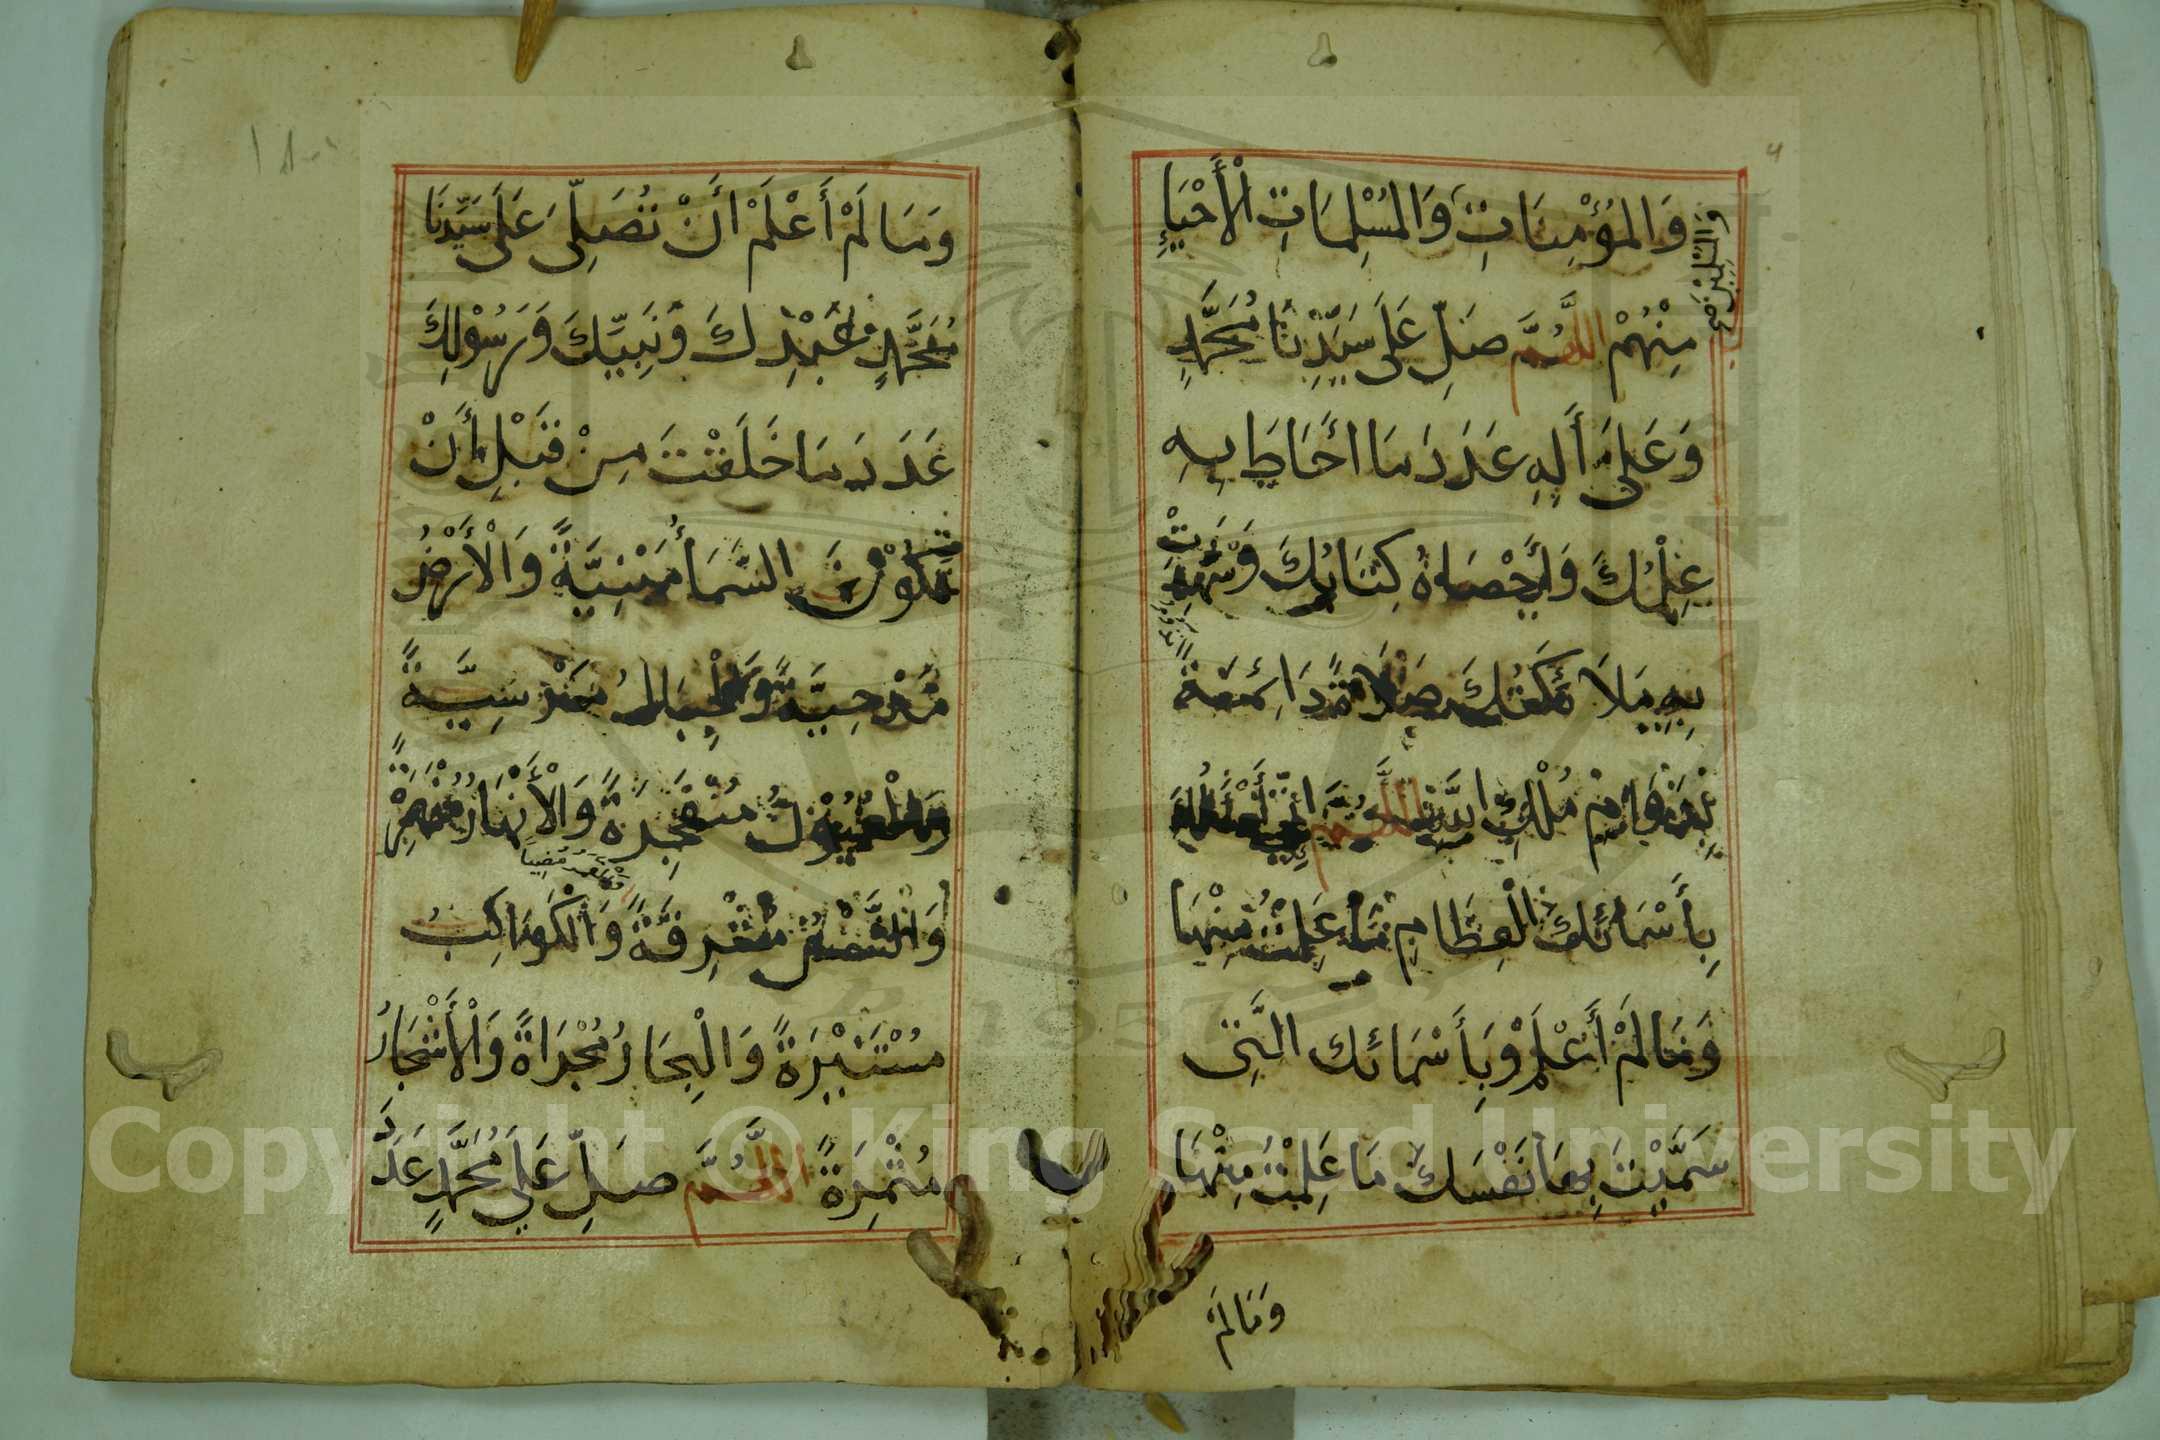 وَالْمُؤْمِنَاتِ وَالْمُسْلِمَاتِ الْأَحْيَاءِ
مِنْهُمْ اللَّهُمَّ صَلِّ عَلَى سَيِّدِنَا مُحَمَّدٍ
وَعَلَى أَلِهِ عَدَدَ مَا أَحَاطَ بِهِ
عِلْمُكَ وَأَحْصَاهُ كِتَابُكَ وَشَهِدَتْ
بِهِ مَلَائِكَتُكَ صَلَاةً دَائِمَةً
مُلْكِ اللَّهُمَّ إِنِّي أَسْأَلُكَ
بِأَسْمَائِكَ الْعِظَامِ مَا عَلِمْتُ مِنْهَا
وَمَا لَمْ أَعْلَمْ وَبِأَسْمَائِكَ الَّتِي
سَمَّيْتَ بِهَا نَفْسَكَ مَا عَلِمْتُ مِنْهَا
وَمَا لَمْ
وَمَا لَمْ أَعْلَمْ أَنْ تُصَلِّيَ عَلَى سَيِّدِنَا
مُحَمَّدٍ عَبْدِكَ وَنَبِيِّكَ وَرَسُوْلِكَ
عَدَدَ مَا خَلَقْتَ مِنْ قَبْلِ أَنْ
تَكُوْنَ السَّمَاءُ مَبْنِيَّةً وَالْأَرْضُ
مَدْحِيَّةً وَالْجِبَالُ مَرْسِيَّةً
وَالْعُيُوْنُ مُنْفَجِرَةً وَالْأَنْهَارُ مُنْهَمِرَةً
وَالشَّمْسُ مُشْرِقَةً وَالْكَوَاكِبُ
مُسْتَنِيْرَةً وَالْبِحَارُ مُجْرَاةً وَالْأَشْجَارُ
مُثْمِرَةً اللَّهُمَّ صَلِّ عَلَى مُحَمَّدٍ عَدَدَ
Copyright © King Saud University
1957